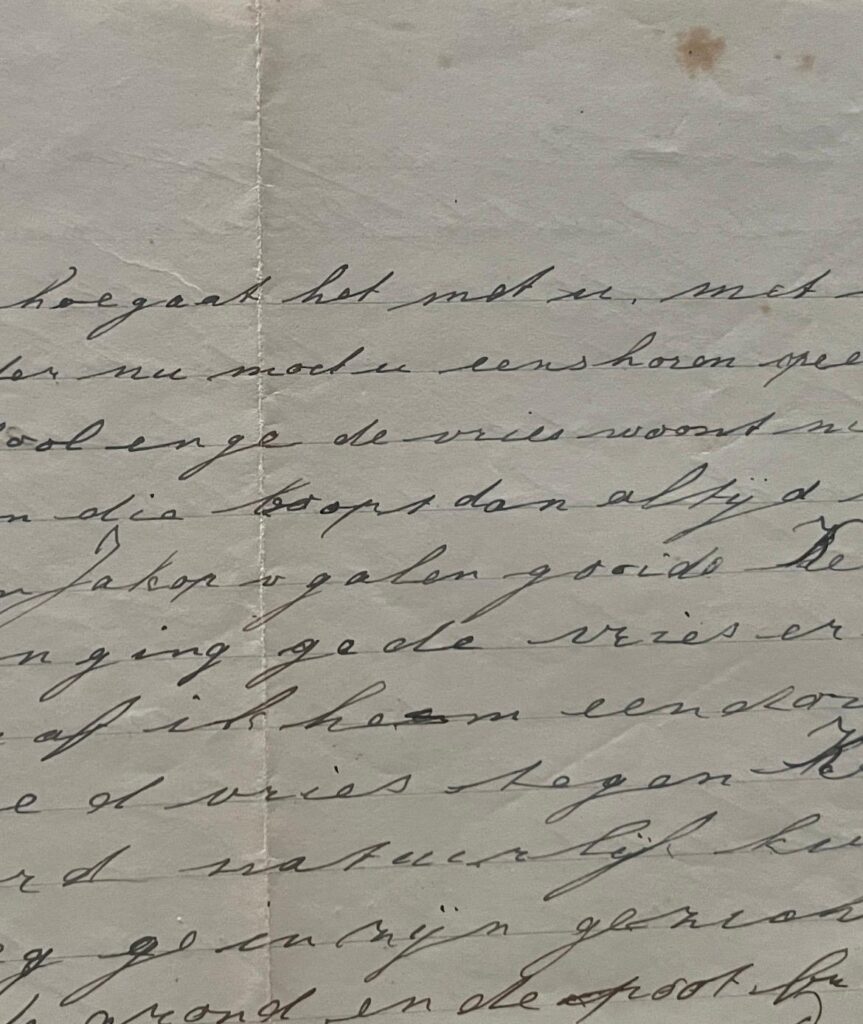 hoe gaat het met u. met
der nu moet u eens horen
ool en ge de vries woont
n die koopt dan altijd
Jakop v galen gooide Ke
n ging ge de vries er
af ik hem een
e d vries tegen K
rd natuurlijk
g ge in zijn
grond en de poot